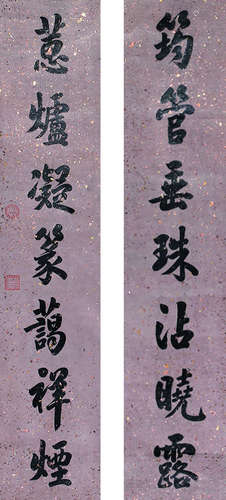 筠管垂珠沾曉露
蕙爐凝篆藹祥煙